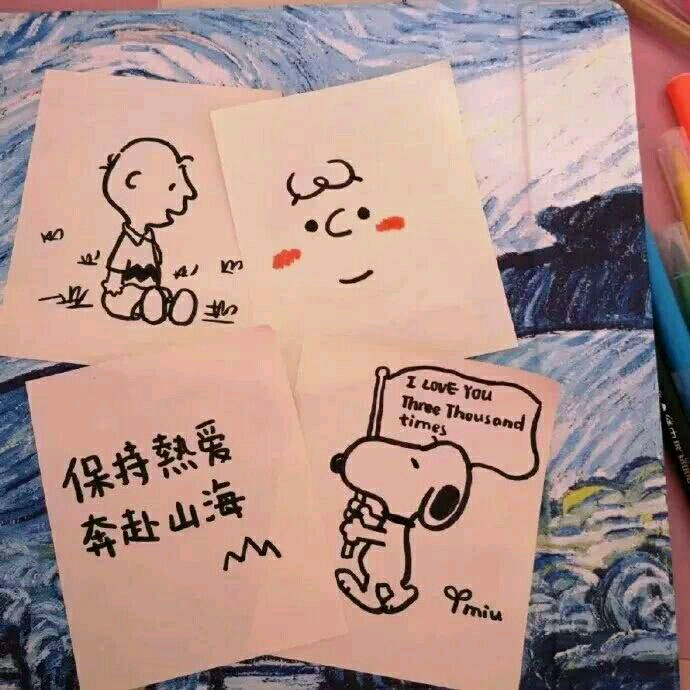 I LOVE YOU
Three Thousand
times
保持熱爱
奔赴山海
miu